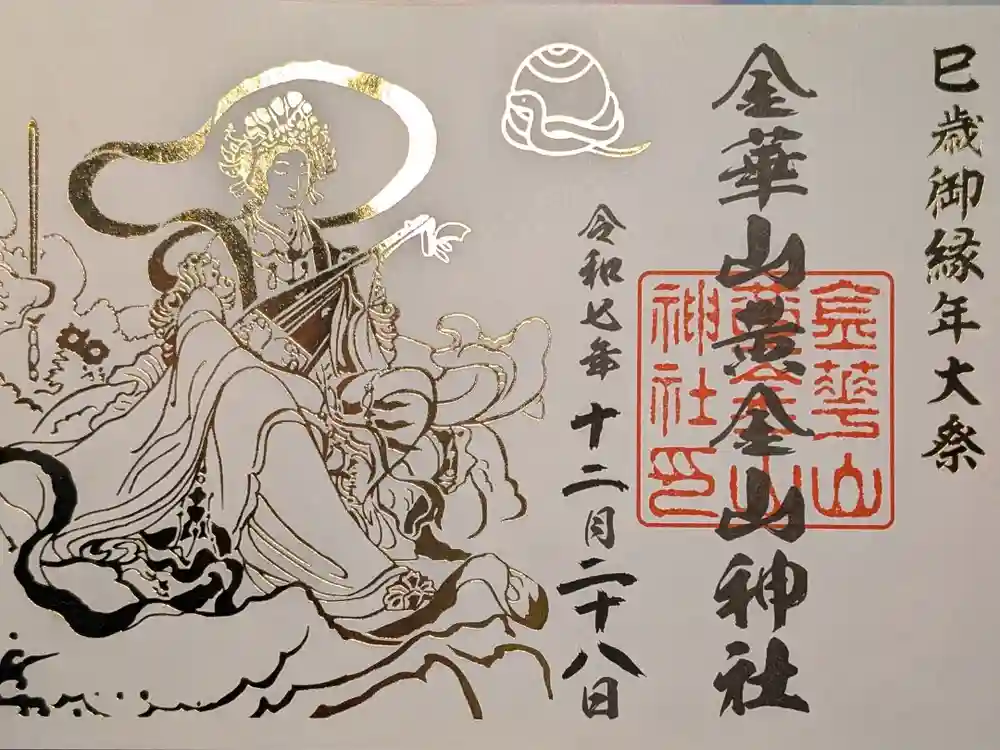 巳歳御縁年大祭
金華山黄金山神社
金華山
黄金山
神社印
令和七年 十二月二十八日